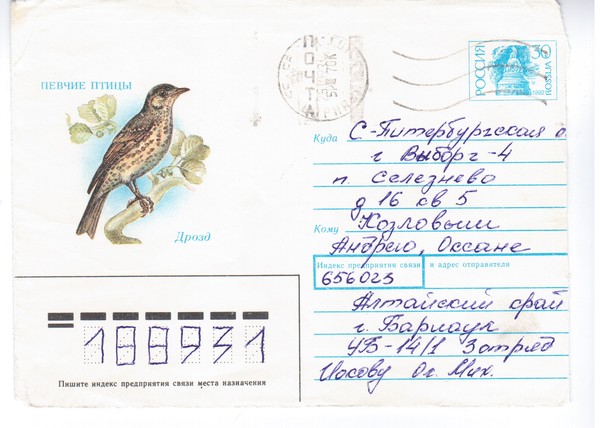 ПЕВЧИЕ ПТИЦЫ
Дрозд
РОССИЯ
30
ПОЧТА
1992
Куда С-Питербургская о.
г Выборг-4
п. Селезнево
д 16 кв 5
Кому Козловым
Андрею, Оксане
Индекс предприятия связи и адрес отправителя
656023
Алтайский край
г. Барнаул
УБ-14/1 3 отряд
Ол. Мих.
188931
Пишите индекс предприятия связи места назначения